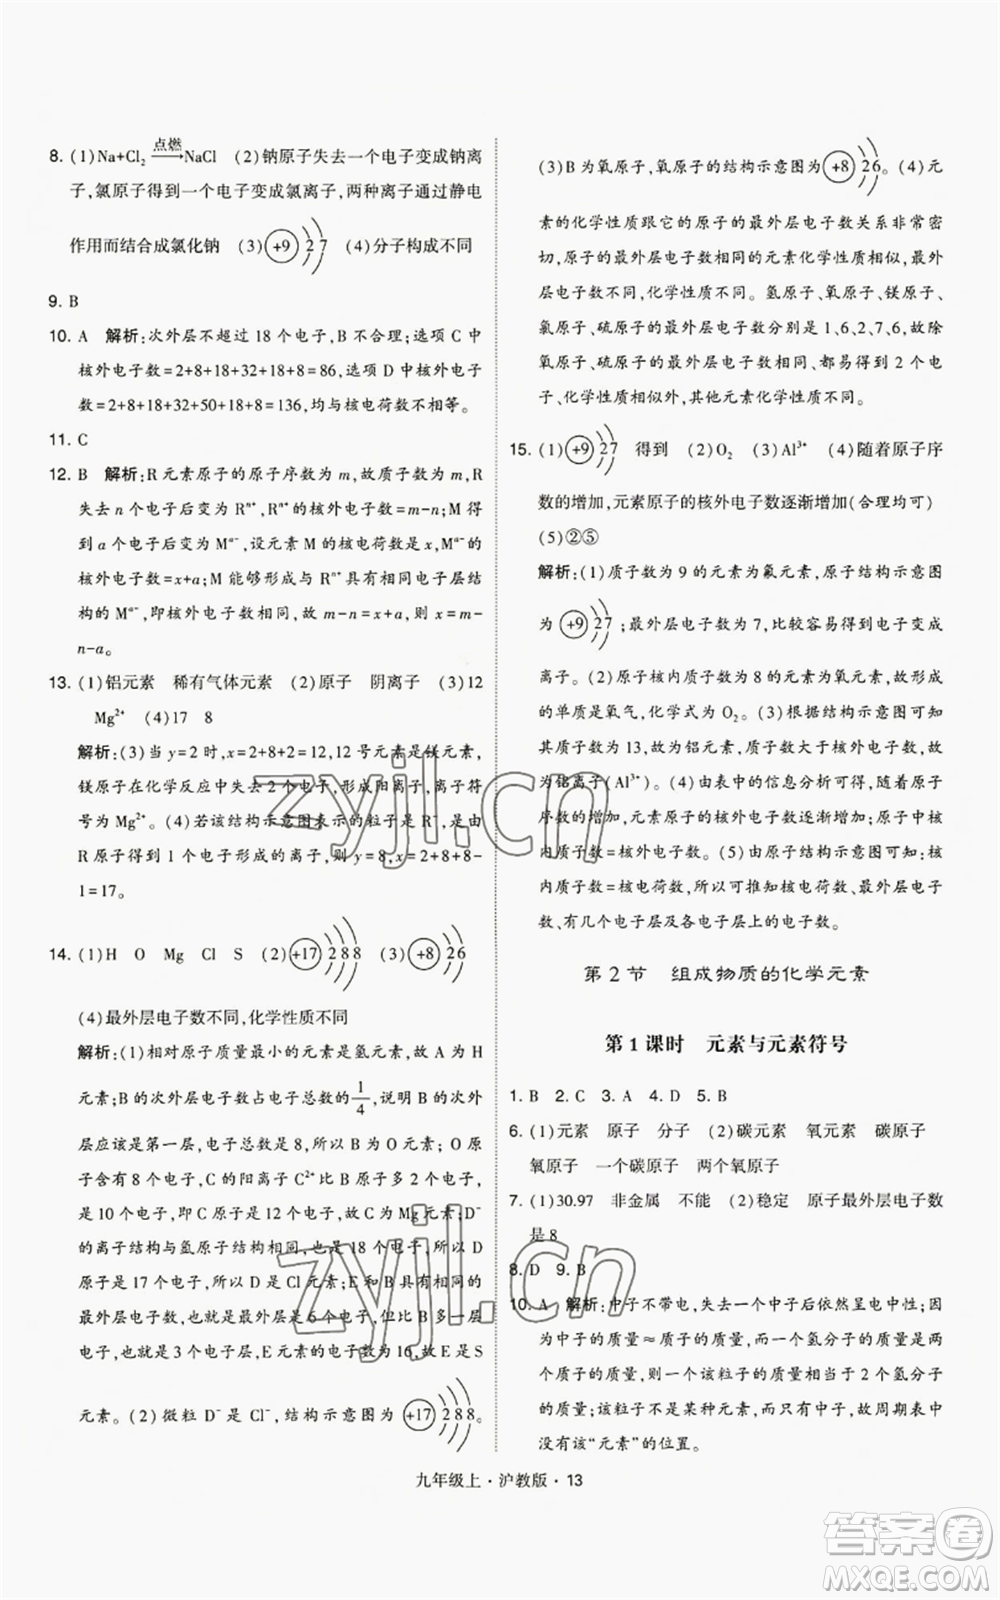 8. (1)Na+Cl₂ —点燃→ NaCl　(2)钠原子失去一个电子变成钠离
子,氯原子得到一个电子变成氯离子,两种离子通过静电
作用而结合成氯化钠　(3) +9 2 7　(4)分子构成不同
9. B
10. A　解析:次外层不超过 18 个电子,B 不合理;选项 C 中
核外电子数=2+8+18+32+18+8=86,选项 D 中核外电子
数=2+8+18+32+50+18+8=136,均与核电荷数不相等。
11. C
12. B　解析:R 元素原子的原子序数为 m,故质子数为 m,R
失去 n 个电子后变为 Rⁿ⁺,Rⁿ⁺的核外电子数=m-n;M 得
到 a 个电子后变为 Mᵃ⁻,设元素 M 的核电荷数为 x,Mᵃ⁻的
核外电子数=x+a;M 能够形成与 Rⁿ⁺具有相同电子层结
构的 Mᵃ⁻,即核外电子数相同,故 m-n=x+a,则 x=m-
n-a。
13. (1)铝元素　稀有气体元素　(2)原子　阴离子　(3)12
Mg²⁺　(4)17　8
解析:(3)当 y=2 时,x=2+8+2=12,12 号元素是镁元素,
镁原子在化学反应中失去 2 个电子,形成阳离子,离子符
号为 Mg²⁺。(4)若该结构示意图表示的粒子是 R⁻,是由
R 原子得到 1 个电子形成的离子,则 y=8,x=2+8+8-
1=17。
14. (1)H　O　Mg　Cl　S　(2) +17 2 8 8　(3) +8 2 6
(4)最外层电子数不同,化学性质不同
解析:(1)相对原子质量最小的元素是氢元素,故 A 为 H
元素;B 的次外层电子数占电子总数的 1/4,所以 B 的次外
层应该是第一层,电子总数是 8,所以 B 为 O 元素;O 原子
含有 8 个电子,C 的阳离子 C²⁺比 B 原子多 2 个电子,于
是 10 个电子,原子含有 12 个电子,故 C 为 Mg 元素;D⁻
的离子结构与氩原子结构相同,也是 18 个电子,所以 D
原子是 17 个电子,所以 D 是 Cl 元素;E 和 B 具有相同的
最外层电子数,也就是最外层是 6 个电子,但是比 B 多一
电子层,也就是 3 个电子层,E 元素的电子数为 16,故 E 是 S
元素。(2)微粒 D⁻是 Cl⁻,结构示意图为 +17 2 8 8。
(3)B 为氧原子,氧原子的结构示意图为 +8 2 6。(4)元
素的化学性质跟它的原子的最外层电子数关系非常密
切,原子的最外层电子数相同的元素化学性质相似,最外
层电子数不同,化学性质不同。氢原子、氧原子、镁原子、
氯原子、硫原子的最外层电子数分别是 1、6、2、7、6,故除
氧原子、硫原子的最外层电子数相同、都易得到 2 个电
子,化学性质相似外,其他元素化学性质都不相似。
15. (1) +9 2 7　得到　(2)O₂　(3)Al³⁺　(4)随着原子序
数的增加,元素原子的核外电子数逐渐增加(合理均可)
(5)②⑤
解析:(1)质子数为 9 的元素为氟元素,原子结构示意图
为 +9 2 7 ;最外层电子数为 7,比较容易得到电子变成
离子。(2)原子核内质子数为 8 的元素为氧元素,组成的
单质是氧气,化学式为 O₂。(3)根据结构示意图可知,质
子数为 13,故为铝元素,质子数大于核外电子数,故该粒子
为铝离子(Al³⁺)。(4)由表中的信息分析可得,随着原子
序数的增加,元素原子的核外电子数逐渐增加。(5)由于
质子数=核电荷数,由原子结构示意图可知:
核内质子数=核电荷数,所以可以确定核电荷数、质子
数、有几个电子层及各电子层上的电子数。
第 2 节　组成物质的化学元素
第 1 课时　元素与元素符号
1. B　2. C　3. A　4. D　5. B
6. (1)元素　原子　分子　(2)碳元素　氧元素　碳原子
氧原子　一个碳原子　两个氧原子
7. (1)30.97　非金属　不能　(2)稳定　原子最外层电子数
是 8
8. D　9. B
10. A　解析:中子不带电,失去一个中子后依然呈电中性;因
为中子的质量≈质子的质量,而一个氢分子的质量是两个
质子的质量,所以一个该粒子的质量大于 2 个氢分子的
质量;该粒子不是某种元素,而是只含有中子,故周期表中
没有该“元素”的位置。
九年级上·沪教版·13
zyjl.cn
zyjl.cn
答案圈
MXQE.COM